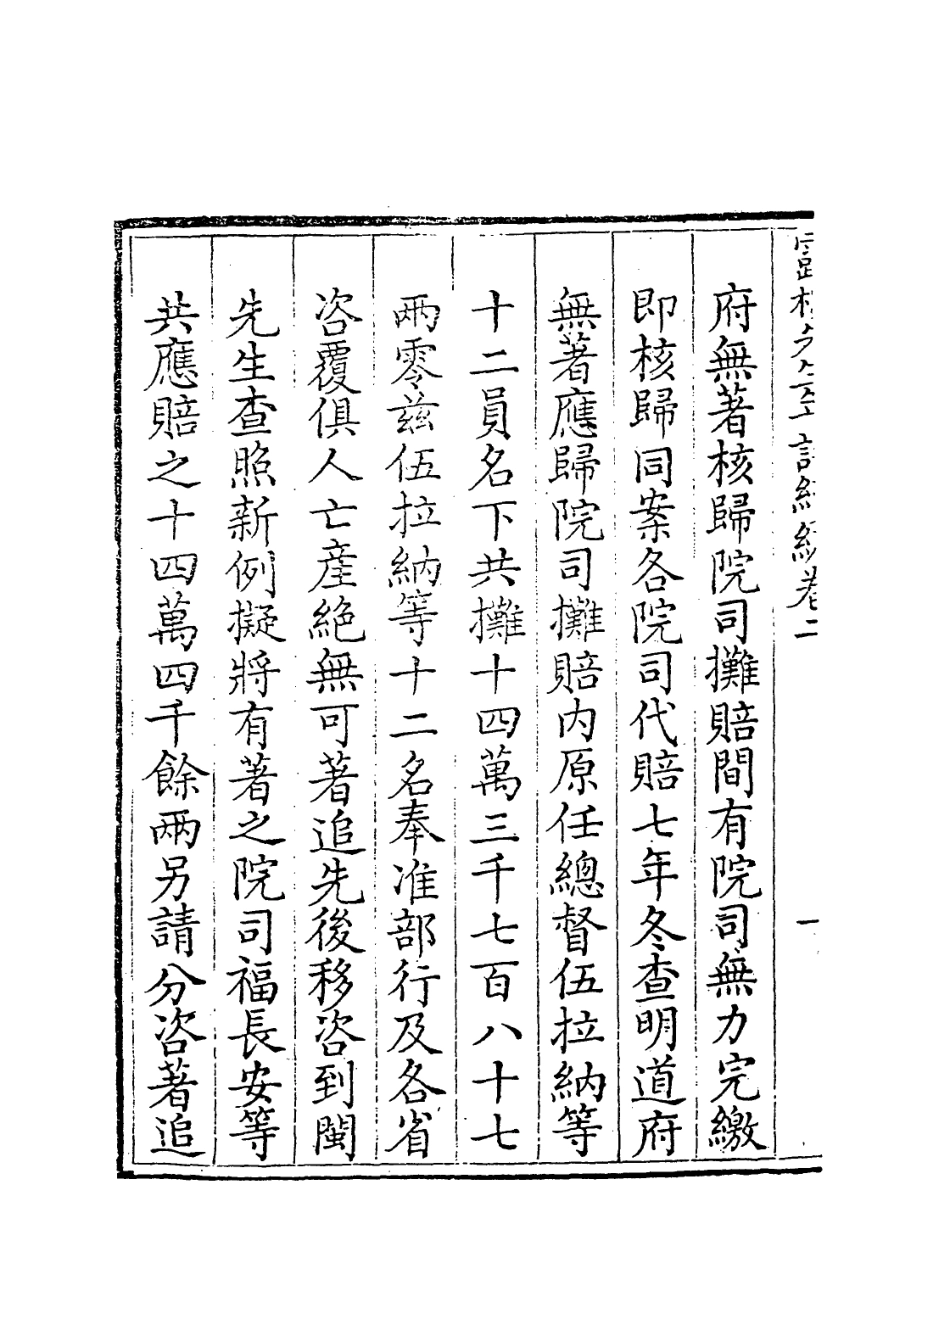 府無著核歸院司攤賠間有院司無力完繳
即核歸同案各院司代賠七年冬查明道府
無著應歸院司攤賠内原任總督伍拉納等
十二員名下共攤十四萬三千七百八十七
兩零兹伍拉納等十二名奉准部行及各省
咨覆俱人亡産絶無可著追先後移咨到閩
先生查照新例擬將有著之院司福長安等
共應賠之十四萬四千餘兩另請分咨著追
卷二
一